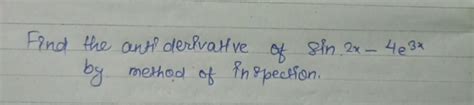 Find the anti derivative of sin 2x - 4e³ˣ
by method of inspection.